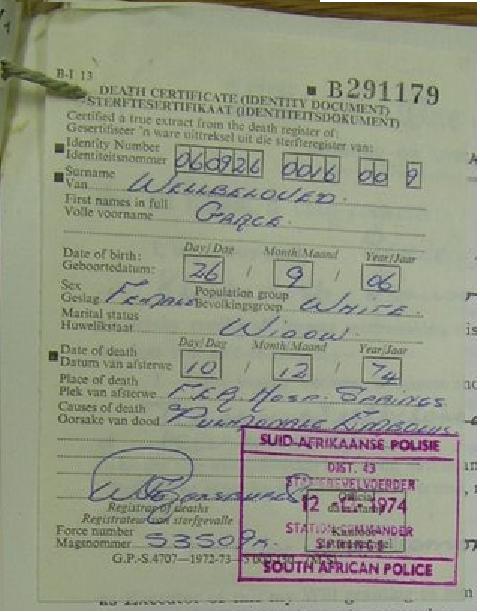 B-I 13
B291179
DEATH CERTIFICATE (IDENTITY DOCUMENT)
STERFTESERTIFIKAAT (IDENTITEITSDOKUMENT)
Certified a true extract from the death register of:
Gesertifiseer 'n ware uittreksel uit die sterfteregister van:
Identity Number
Identiteitsnommer 060926 0016 00 9
Surname
Van WELLBELOVED.
First names in full
Volle voorname GARCE.
Day/Dag Month/Maand Year/Jaar
Date of birth:
Geboortedatum: 26 / 9 / 06
Sex Population group
Geslag FEMALE Bevolkingsgroep WHITE.
Marital status
Huwelikstaat WIDOW.
Day/Dag Month/Maand Year/Jaar
Date of death
Datum van afsterwe 10 / 12 / 74
Place of death
Plek van afsterwe HOSP. SPRINGS
Causes of death
Oorsake van dood PULMONALE EMBOLUS
SUID-AFRIKAANSE POLISIE
DIST. 43
STASIEBEVELVOERDER
12 1974
STATION COMMANDER
SPRINGS
SOUTH AFRICAN POLICE
Registrar of deaths
Registrateur van sterfgevalle
Force number
Magsnommer 53509K.
G.P.-S.4707—1972-73
as Executor of this my